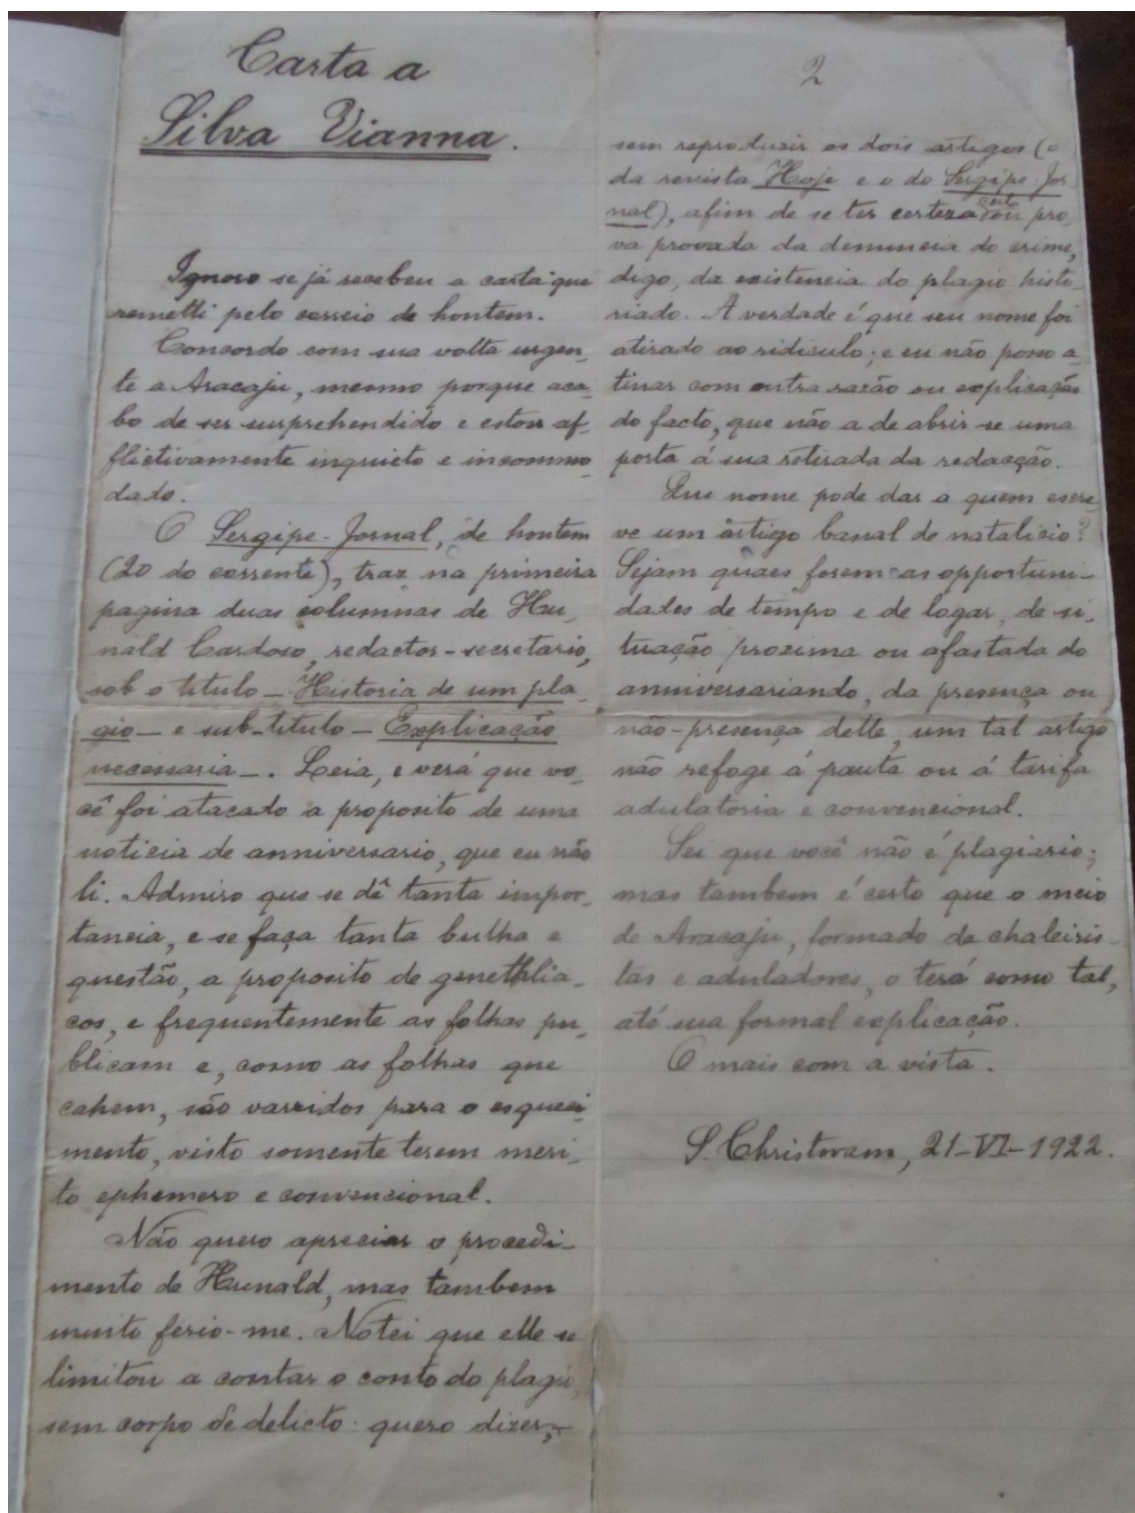 Carta a
Silva Vianna.
Ignoro se já recebeu a carta que
remetti pelo correio de hontem.
Concordo com sua volta urgen-
te a Aracaju, mesmo porque aca-
bo de ser surprehendido e estou af-
flictivamente inquieto e incommo
dado.
O Sergipe-Jornal, de hontem
(20 do corrente), traz na primeira
pagina duas columnas de Hu-
nald Cardoso, redactor-secretario,
sob o titulo - Historia de um pla-
gio - e sub-titulo - Explicação
necessaria -. Leia, e verá que vo-
cê foi atacado a proposito de uma
noticia de anniversario, que eu não
li. Admiro que se dê tanta impor-
tancia, e se faça tanta bulha e
questão, a proposito de genethlia-
cos, e frequentemente as folhas pu-
blicam e, como as folhas que
cahem, são varridos para o esqueci-
mento, visto somente terem meri-
to ephemero e convencional.
Não quero apreciar o procedi-
mento de Hunald, mas tambem
muito ferio-me. Notei que elle se
limitou a contar o conto do plagio,
sem corpo de delicto: quero dizer,
2
sem reproduzir os dois artigos (o
da revista Hoje e o do Sergipe-Jor
nal), afim de se ter certeza ou pro-
va provada da denuncia do crime,
digo, da existencia do plagio histo-
riado. A verdade é que seu nome foi
atirado ao ridiculo; e eu não posso a-
tinar com outra razão ou explicação
do facto, que não a de abrir-se uma
porta á sua retirada da redacção.
Que nome pode dar a quem escre-
ve um artigo banal de natalicio?
Sejam quaes forem as opportuni-
dades de tempo e de logar, de si-
tuação proxima ou afastada do
anniversariando, da presença ou
não-presença delle, um tal artigo
não refoge á pauta ou á tarifa
adulatoria e convencional.
Sei que você não é plagiario;
mas tambem é certo que o meio
de Aracaju, formado de chaleiris-
tas e aduladores, o terá como tal,
até sua formal explicação.
O mais com a vista.
S. Christovam, 21-VI-1922.